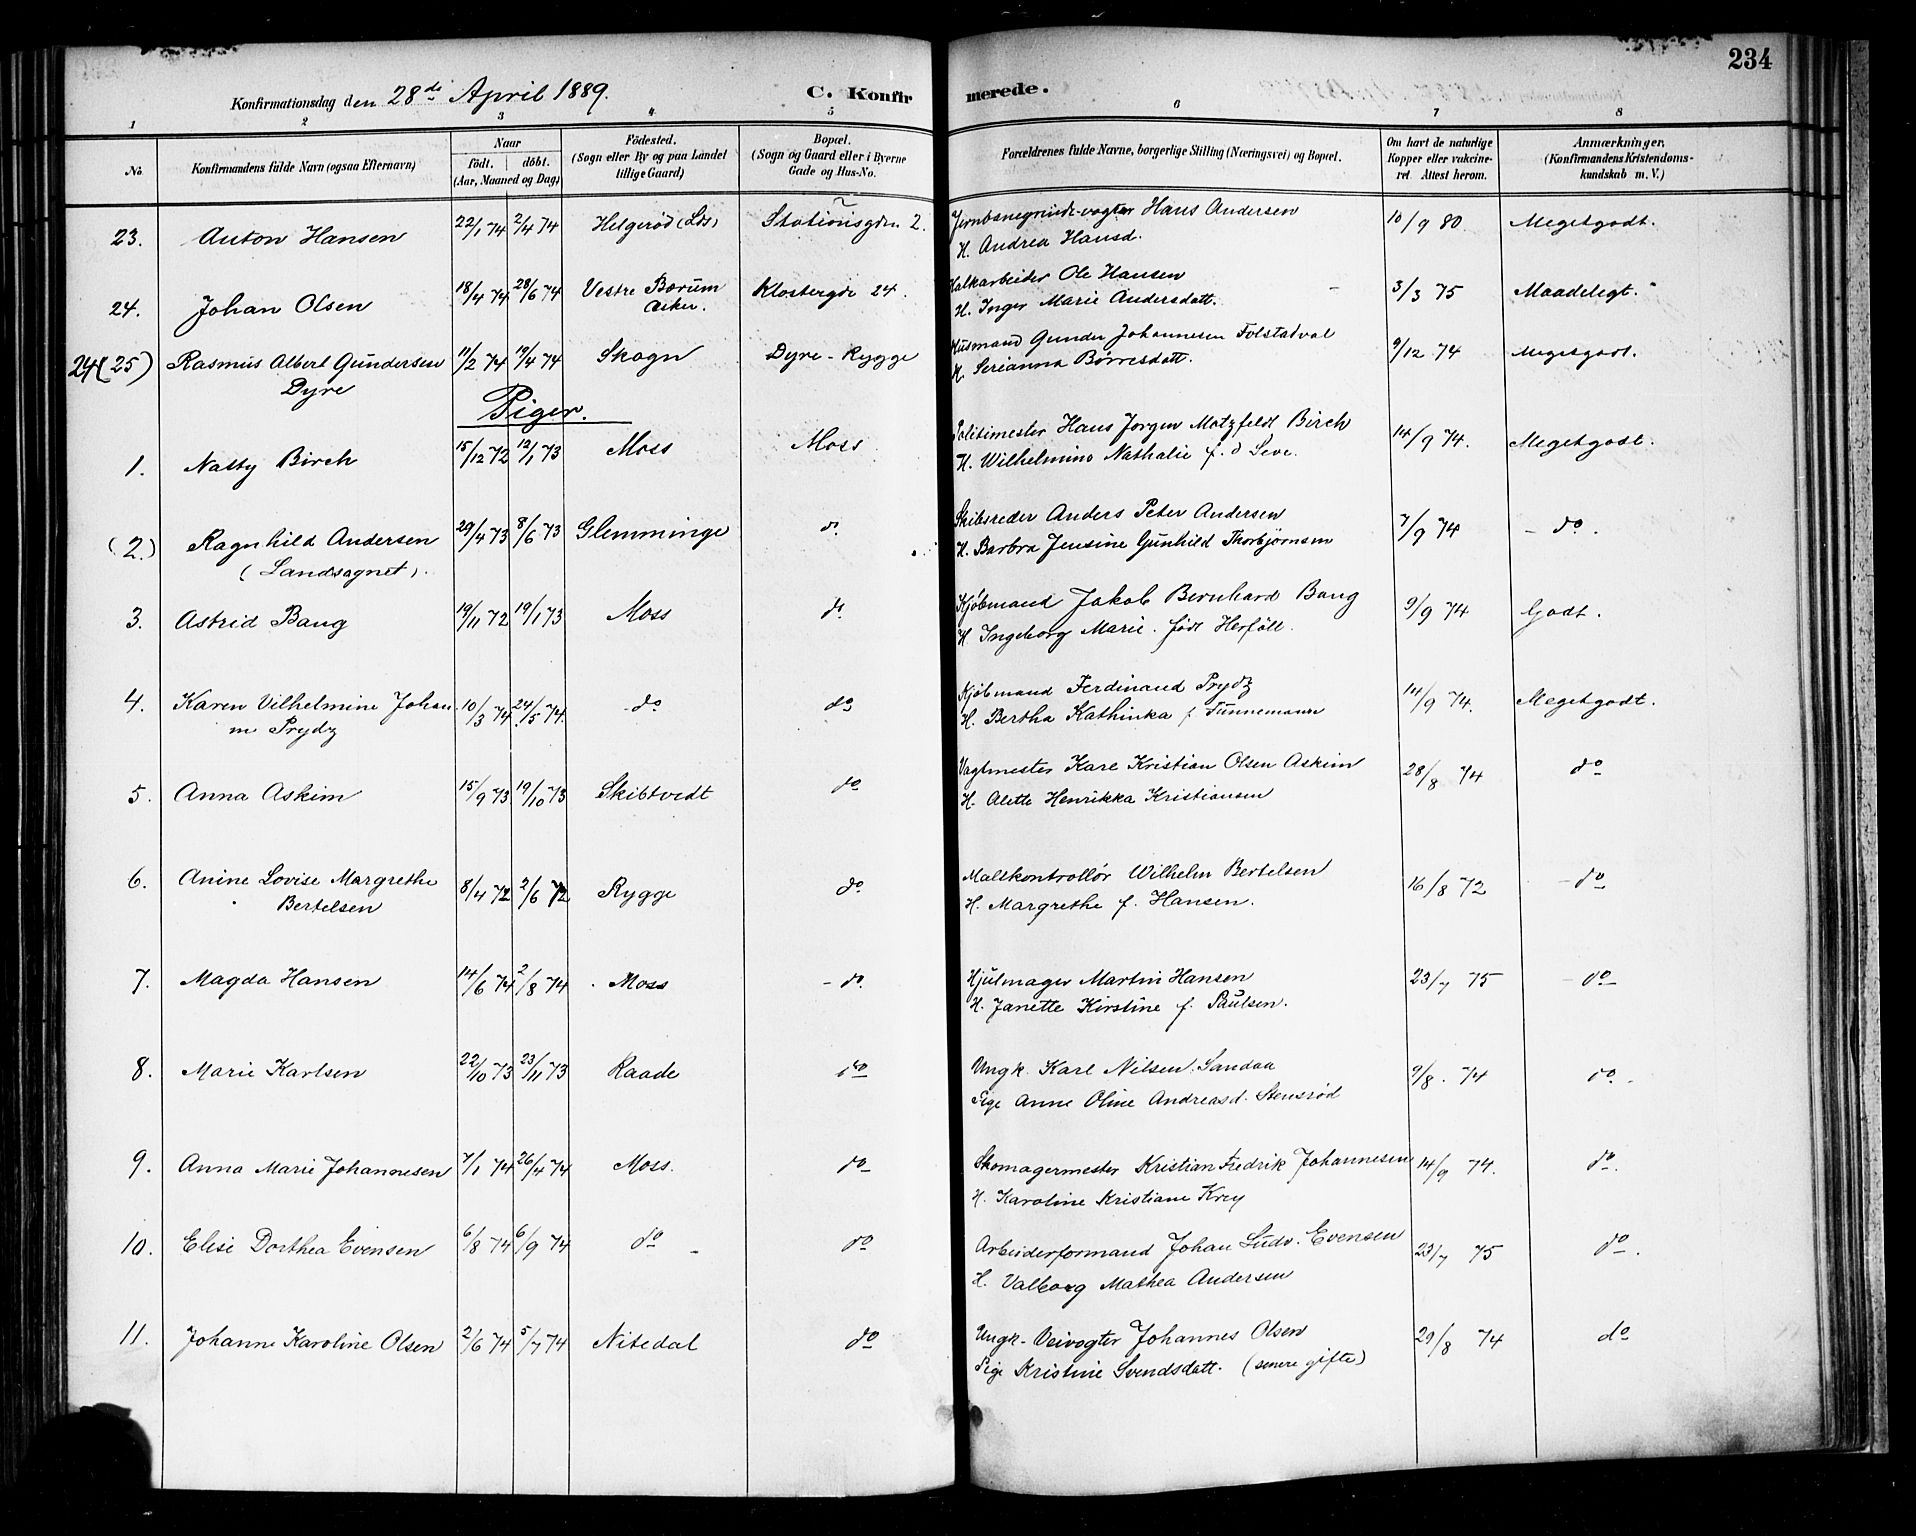 234
Konfirmationsdag den 28de April 1889. C. Konfirmerede.
1 2 3 4 5 6 7 8
No
Konfirmandens fulde Navn (ogsaa Efternavn)
Naar
født. døbt.
(Aar, Maaned og Dag)
Födested.
(Sogn eller By og paa Landet
tillige Gaard)
Bopæl.
(Sogn og Gaard eller i Byerne
Gade og Hus-No.
Forældrenes fulde Navne, borgerlige Stilling (Næringsvei) og Bopæl.
Om havt de naturlige
Kopper eller vakcine-
ret. Attest herom.
Anmærkninger,
(Konfirmandens Kristendoms-
kundskab m. V.)
23. Anton Hansen 22/1 74 2/4 74 Helgerød (Lds) Stationsgden 2. Jernbanegrindevogter Hans Andersen 10/9 80. Megetgodt.
H. Andrea Hansd.
24. Johan Olsen 18/4 74 28/6 74 Vestre Bærum Klostergde 24. Kalkarbeider Ole Hansen 3/3 75 Maadeligt.
Asker. H. Inger Marie Andersdatt.
24 (25) Rasmus Albert Gundersen 11/2 74 19/4 74 Skogn Dyre - Rygge Husmand Gunder Johannesen Folstadval 9/12 74 Megetgodt.
Dyre H. Serianna Børresdatt.
Piger.
1. Natty Birch 15/12 72 12/1 73 Moss Moss Politimester Hans Jørgen Motzfeldt Birch 14/9 74. Megetgodt.
H. Wilhelmine Nathalie f. d Seve.
(2.) Ragnhild Andersen 29/4 73 8/6 73 Glemminge do Skibsreder Anders Peter Andersen 7/9 74 - do.
(Landsognet). H. Barbra Jensine Gunhild Thorbjørnsen
3. Astrid Bang 19/11 72 19/1 73 Moss do Kjøbmand Jakob Bernhard Bang 9/9 74 Godt.
H. Ingeborg Marie. født Herføll.
4. Karen Vilhelmine Johan 10/3 74 24/5 74. do do Kjøbmand Ferdinand Prydz 14/9 74. Megetgodt.
ne Prydz H. Bertha Kathinka f. Tünnemann
5. Anna Askim 15/9 73 19/10 73 Skibtvedt do Vagtmester Karl Kristian Olsen Askim 28/8 74 do
H. Alette Henrikka Kristiansen
6. Anine Lovise Margrethe 8/4 72 2/6 72 Rygge do Maltkontrollør Wilhelm Bertelsen 16/8 72 - do
Bertelsen H. Margrethe f. Hansen.
7. Magda Hansen 14/6 74 2/8 74 Moss - do. Hjulmager Martin Hansen 23/7 75 - do
H. Janette Kirstine f. Paulsen.
8. Marie Karlsen 22/10 73 23/11 73 Raade do Ungk. Karl Nilsen Sandaa 9/8. 74 do.
Pige Anne Oline Andreasd. Stensrød
9. Anna Marie Johannesen 7/1 74 26/4 74 Moss. do Skomagermester Kristian Fredrik Johannesen 14/9 74. do.
H. Karoline Kristiane Krey
10. Elise Dorthea Evensen 6/8 74 6/9 74 do - do Arbeiderformand Johan Ludv. Evensen 23/7 75 do.
H. Valborg Mathea Andersen
11. Johanne Karoline Olsen 2/6 74 5/7 74 Nitedal do Ungk. Veivogter Johannes Olsen 29/8 74 do
Pige Kristine Svendsdatt. (senere gifte)